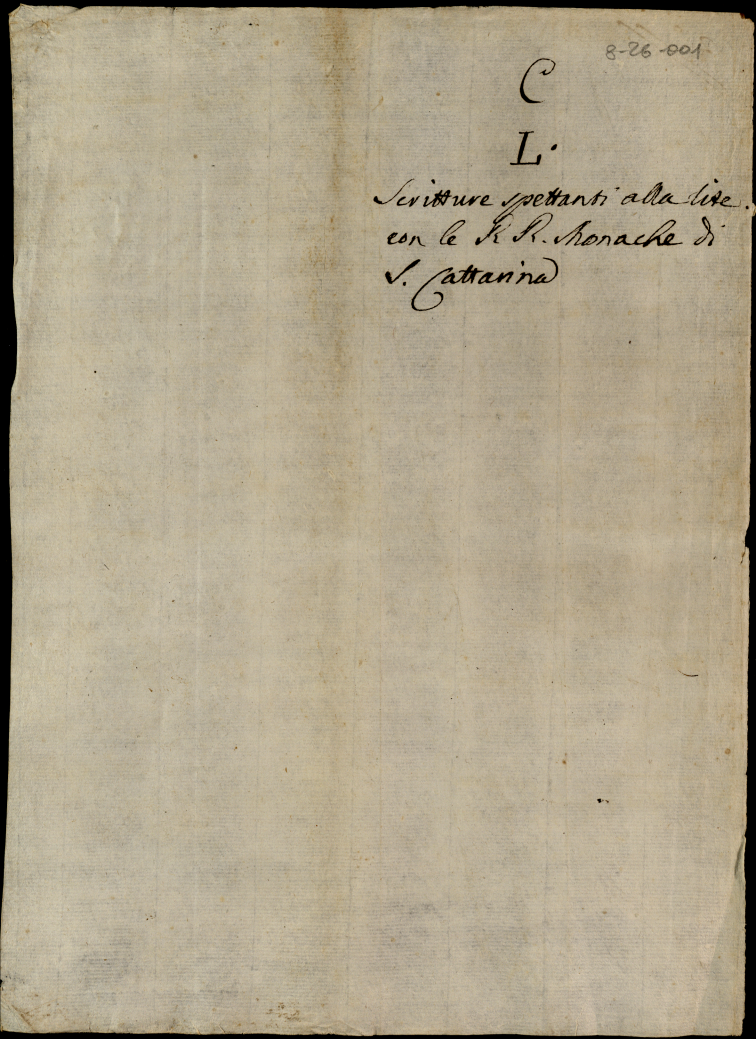 8-26-001
C
L.
Scritture spettanti alla lite
con le R R. Monache di
S. Cattarina